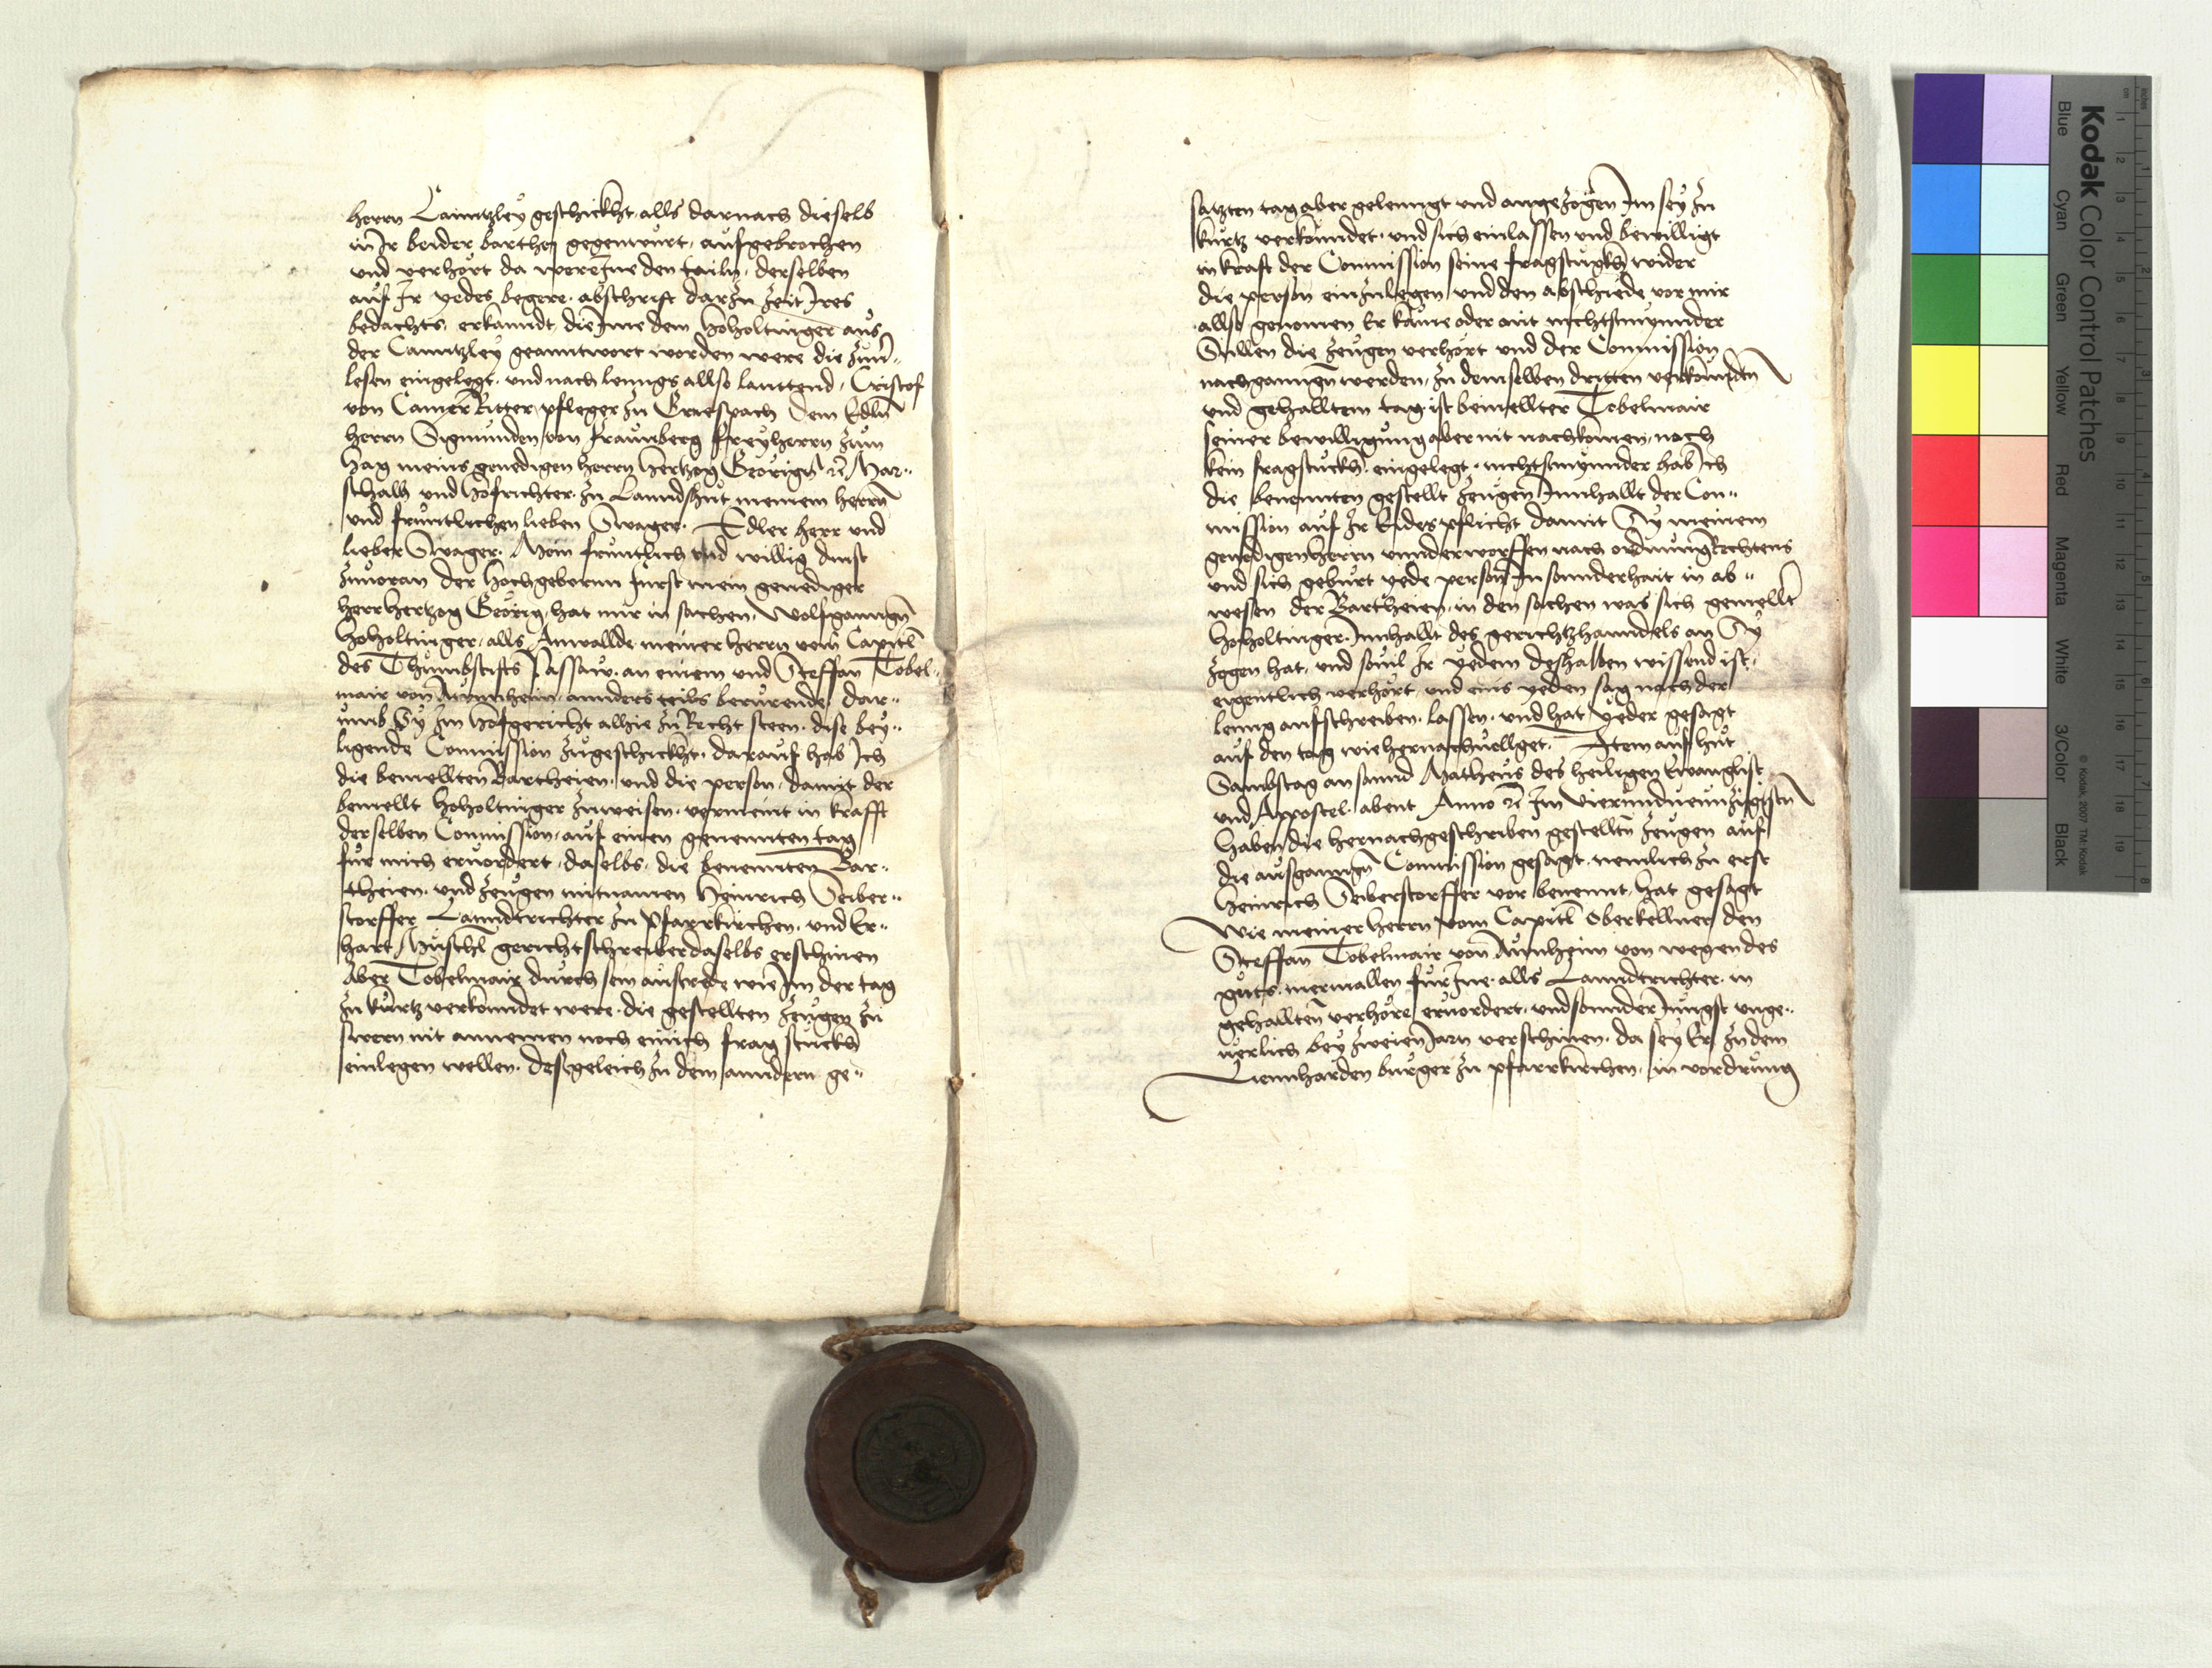 herrn Canntzley geschickht, alls darnach dieselb
in Ir beider barthej gegenwurt, aufgebrochen
und verhort da were Ine den tailn, derselben
auf Ir yedes begere abschrift darzu zeit Ires
bedachts, erkanndt, die Ime dem Hoholtinger aus
der Canntzley geanntwort worden were die zuuer¬
lesen eingelegt, und nach lenngs allso lauttend, Cristof
von Camer Ritter pfleger zu Griespach Dem Edln
herrn Sigmunden von Fraunberg Freyherrn zum
Hag meins genedigen herrn Hertzog Georign rc Mar¬
schalh und Hofrichter zu Lanndshut meinem herrn
und fruntlichen lieben Swager. Edler herr und
lieber Swager. Mein fruntlich und willig dinst
zuuoran der Hochgeborn Furst mein genediger
herr Hertzog Georig, hat mir in sachen, Wolfganngn
Hoholtinger, alls Anwallde meiner herrn vom Capitl
des Thumbstifts Passaw, an einem und Steffan Tobel¬
mair von Aunhein annders teils berurende dar¬
umb Sy Im Hofgericht allhie zu Recht steen, dise bey¬
ligende Commission zugeschickht, darauf hab Ich
die bemellten Bartheien, und die person, damit der
bemellt Hoholtinger zuweisen, vermeint in krafft
derselben Commission, auf einen genennten tag
fur mich eruordert, daselbs, die benennten Bar¬
theien, und zeugen mitnamen Heinrich Seiber¬
storffer Lanndtrichter zu Pfarrkirchen, und Er¬
hart Muschl gerichtschreiber daselbs erschinen
Aber Tobelmair durch sein ausrede wie Im der tag
zu kurtz verkonndet were, die gestellten zeugen zu
swern nit annemen noch einich frag stuckh
einlegen wellen, desgeleich zu dem anndern ge¬
satzten tag aber gelenngt und angezogen Im sey zu
kurtz verkonndet, und sich einlassen und bewilligt
in kraft der Commission seine fragstugkh wider
die person einzulegen und den abschiede vor mir
allso genomen Er kame oder nit nichtsmynnder
Sullen die zeugen verhort und der Commission
nachganngn werden, zu demselben dritten verkonnden
und gehalltem tag ist bemellter Tobelmair
seiner bewilligung aber nit nachkomen, noch
kein fragstuckh eingelegt, nichtsmynnder hab Ich
die benennten gestellt zeugen Innhallt der Com¬
mission auf Ir Eidespflicht damit Sy meinem
genedigen herrn unnderworffen nach ordnung Rechtens
und sich geburt yede person In sonnderhait in ab¬
wesen der Bartheien, in den sachen was sich gemellt
Hoholtinger Innhallt des gerichtzhanndels an Sy
zogen hat, und souil Ir yedem deshalben wissend ist,
eigentlich verhort, und eins yeden sag nach der
leng aufschreiben lassen, und hat yeder gesagt
auf den tag wie hernachuollget. Item auf hut
Sambstag an sannd Matheus des heiligen Ewanglist
und Appostel abent Anno rc Im Vierundneunzigisten
haben die hernachgeschriben gestellten zeugen auf
die ausgangn Commission gesagt, nemlich zu erst
Heinrich Seiberstorffer vor benennt, hat gesagt
Wie meiner herrn vom Capitl Oberkellner den
Steffan Tobelmair von Aunheim von wegen des
guts, mermallen fur Ine, alls Lanndtrichter in
gehallten verhore, eruordert, und sonnder Iungst unge¬
uerlich bey zweien Iarn verschinen, da sey Er zu dem
Liennharden burger zu pfarrkirchen, in vordrung